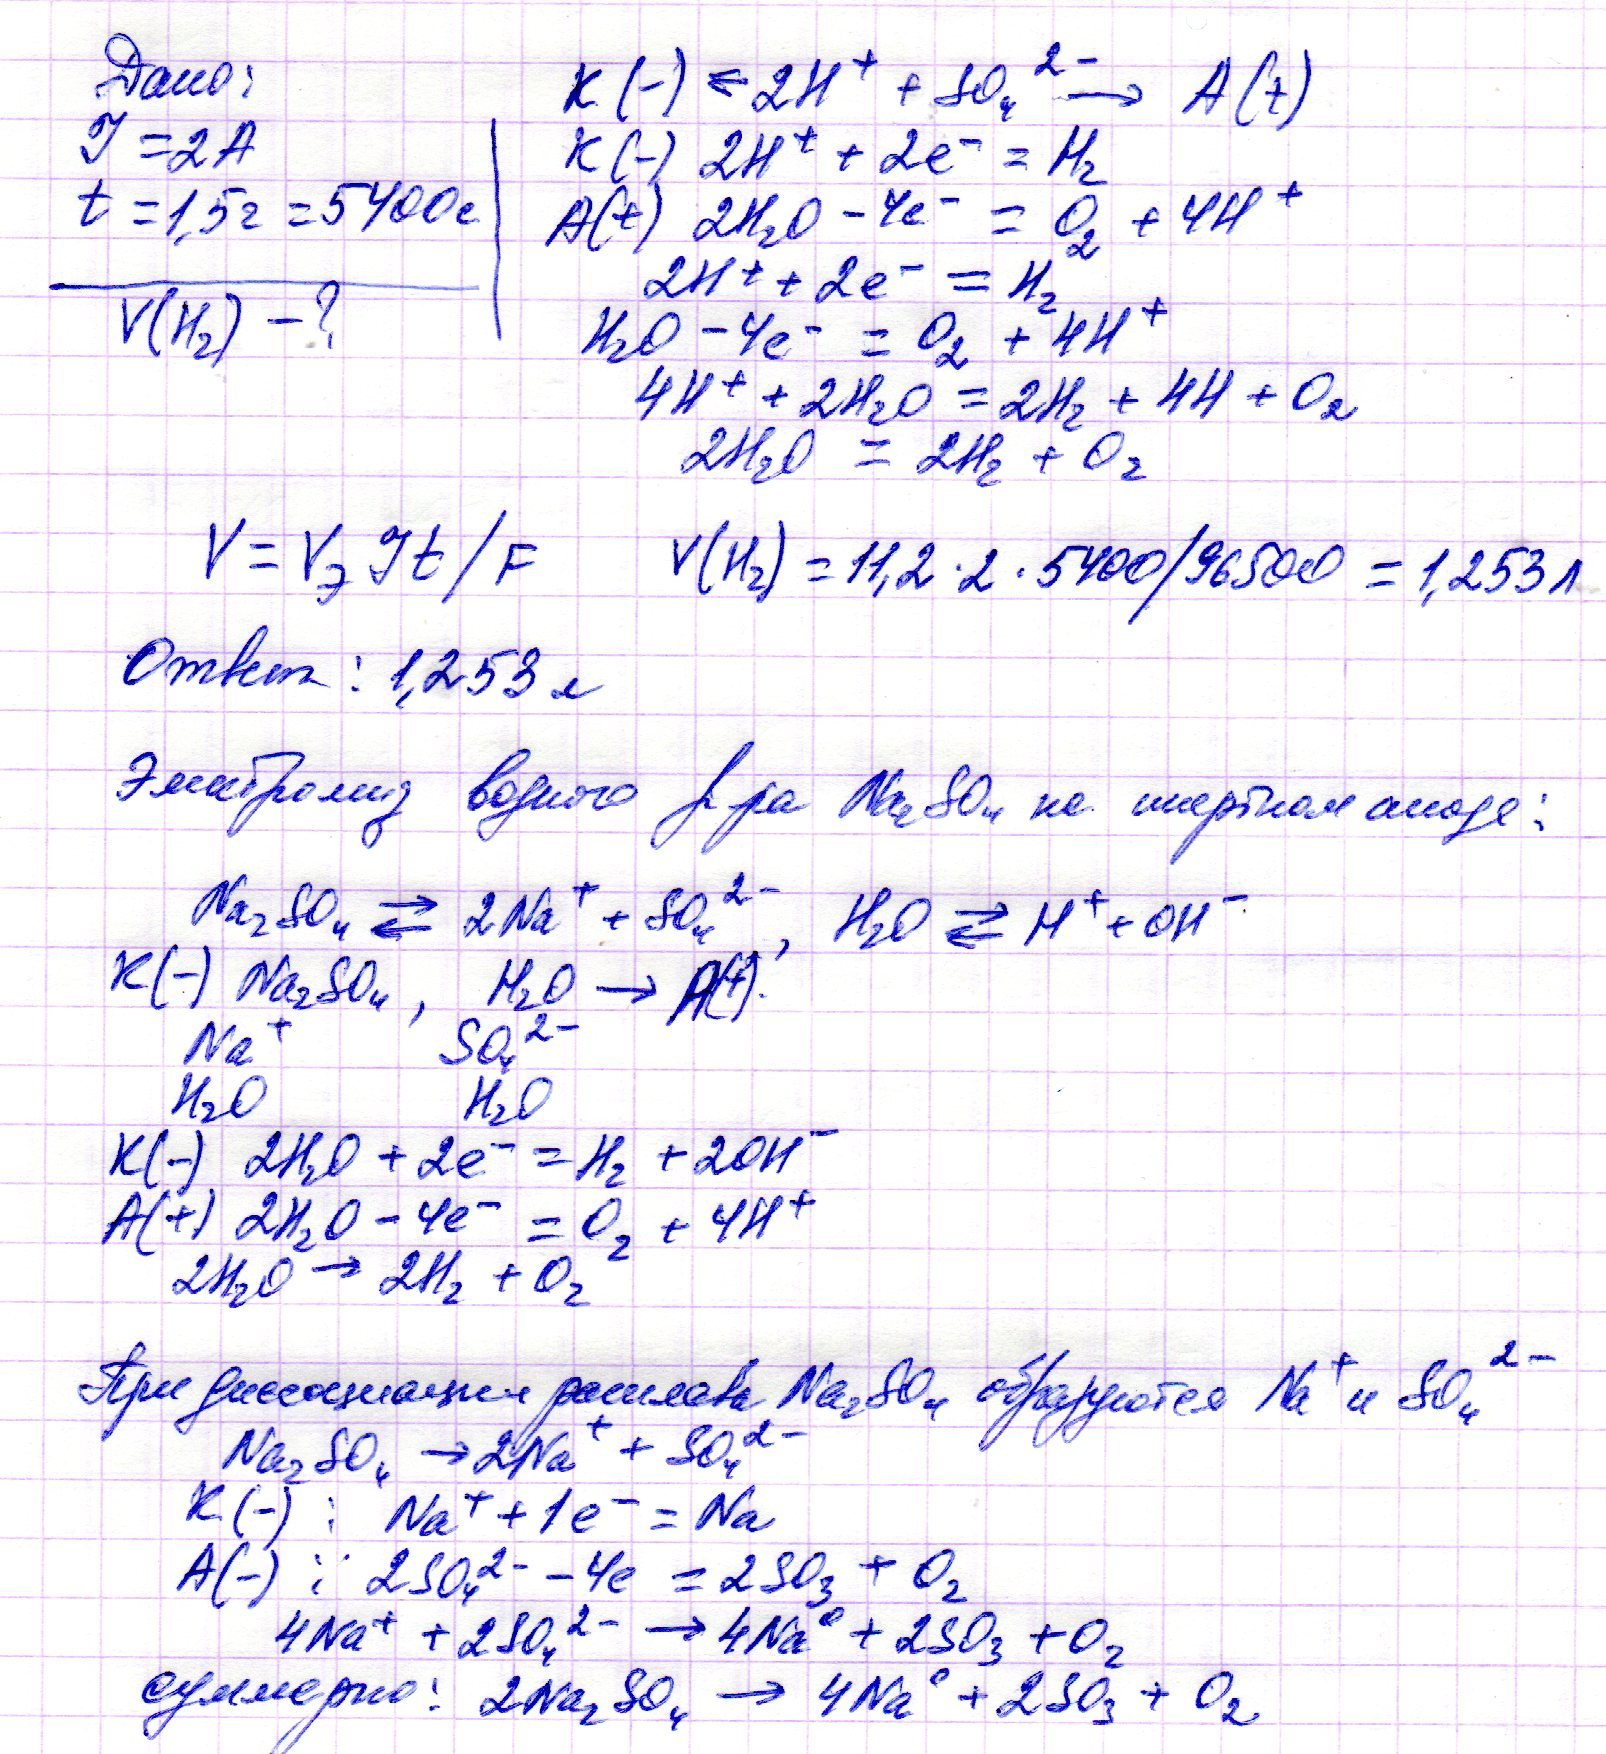 Дано:
I = 2A
t = 1,5ч = 5400с
V(H₂) - ?
K(-) ← 2H⁺ + SO₄²⁻ → A(+)
K(-) 2H⁺ + 2e⁻ = H₂
A(+) 2H₂O - 4e⁻ = O₂ + 4H⁺
2H⁺ + 2e⁻ = H₂
H₂O - 4e⁻ = O₂ + 4H⁺
4H⁺ + 2H₂O = 2H₂ + 4H + O₂
2H₂O = 2H₂ + O₂
V = Vэ It/F V(H₂) = 11,2·2·5400/96500 = 1,253 л
Ответ: 1,253 л
Электролиз водного р-ра Na₂SO₄ на инертном аноде:
Na₂SO₄ ⇄ 2Na⁺ + SO₄²⁻, H₂O ⇄ H⁺ + OH⁻
K(-) Na₂SO₄, H₂O → A(+).
Na⁺ SO₄²⁻
H₂O H₂O
K(-) 2H₂O + 2e⁻ = H₂ + 2OH⁻
A(+) 2H₂O - 4e⁻ = O₂ + 4H⁺
2H₂O → 2H₂ + O₂
При диссоциации расплава Na₂SO₄ образуются Na⁺ и SO₄²⁻
Na₂SO₄ → 2Na⁺ + SO₄²⁻
K(-): Na⁺ + 1e⁻ = Na
A(-): 2SO₄²⁻ - 4e = 2SO₃ + O₂
4Na⁺ + 2SO₄²⁻ → 4Na⁰ + 2SO₃ + O₂
суммарно: 2Na₂SO₄ → 4Na⁰ + 2SO₃ + O₂